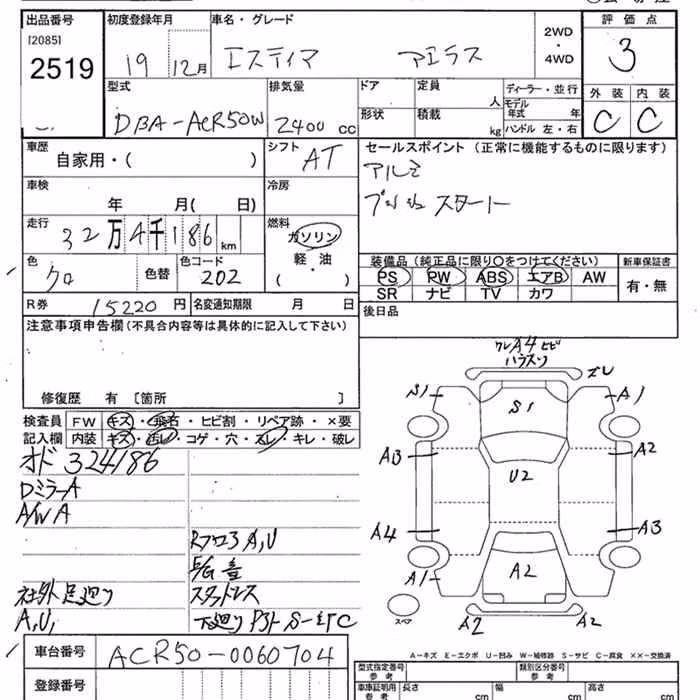 出品番号 初度登録年月 車名・グレード 2WD 評価点
[2085] ・
2519 19 12月 エスティマ アエラス 4WD 3
型式 排気量 ドア 定員 人 ディーラー・並行 外装 内装
DBA-ACR50W 2400 cc 形状 積載 kg モデル年式 年 C C
ハンドル 左・右
車歴 自家用・( ) シフト AT セールスポイント (正常に機能するものに限ります)
車検 年 月( 日) 冷房 アルミ
プッシュスタート
走行 32万4千186km 燃料 ガソリン
軽・油
( )
装備品(純正品に限り〇をつけてください) 新車保証書
色 クロ 色替 色コード 202 PS PW ABS エアB AW 有・無
SR ナビ TV カワ
R券 15220円 名変通知期限 月 日 後日品
注意事項申告欄(不具合内容等は具体的に記入して下さい)
修復歴 有 [箇所 ]
検査員 FW キズ・飛石・ヒビ割・リペア跡・×要
記入欄 内装 キズ・汚レ・コゲ・穴・スレ・キレ・破レ
オド 324186
DミラーA
A/W A
Rフロア A,U
E/G 音
社外足廻り スタットレス
A,U, 下廻り
車台番号 ACR50-0060704
登録番号
A4ヒビ
S1 A1
S1
A3 A2
U2
A4 A3
A1 A2
スペア A2 A2
A-キズ E-エクボ U-凹み W-補修跡 S-サビ C-腐食 XX-交換済
型式指定番号 類別区分番号
参考
車庫証明用 長さ 幅 高さ
参考 cm cm cm